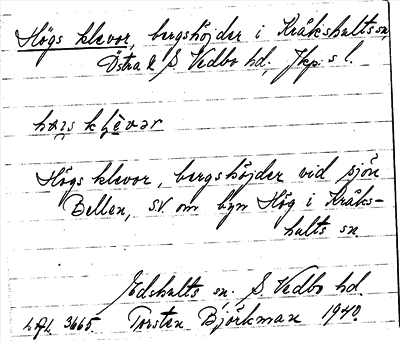 Högs klevor, bergshöjder i Kråkshults sn,
Östra & S Vedbo hd, Jkp. s l.
Högs klevor, bergshöjder vid sjön
Bellen, SV. om byn Hög i Kråks-
hults sn
Edshults sn. S Vedbo hd.
3665 Torsten Björkman 1940.